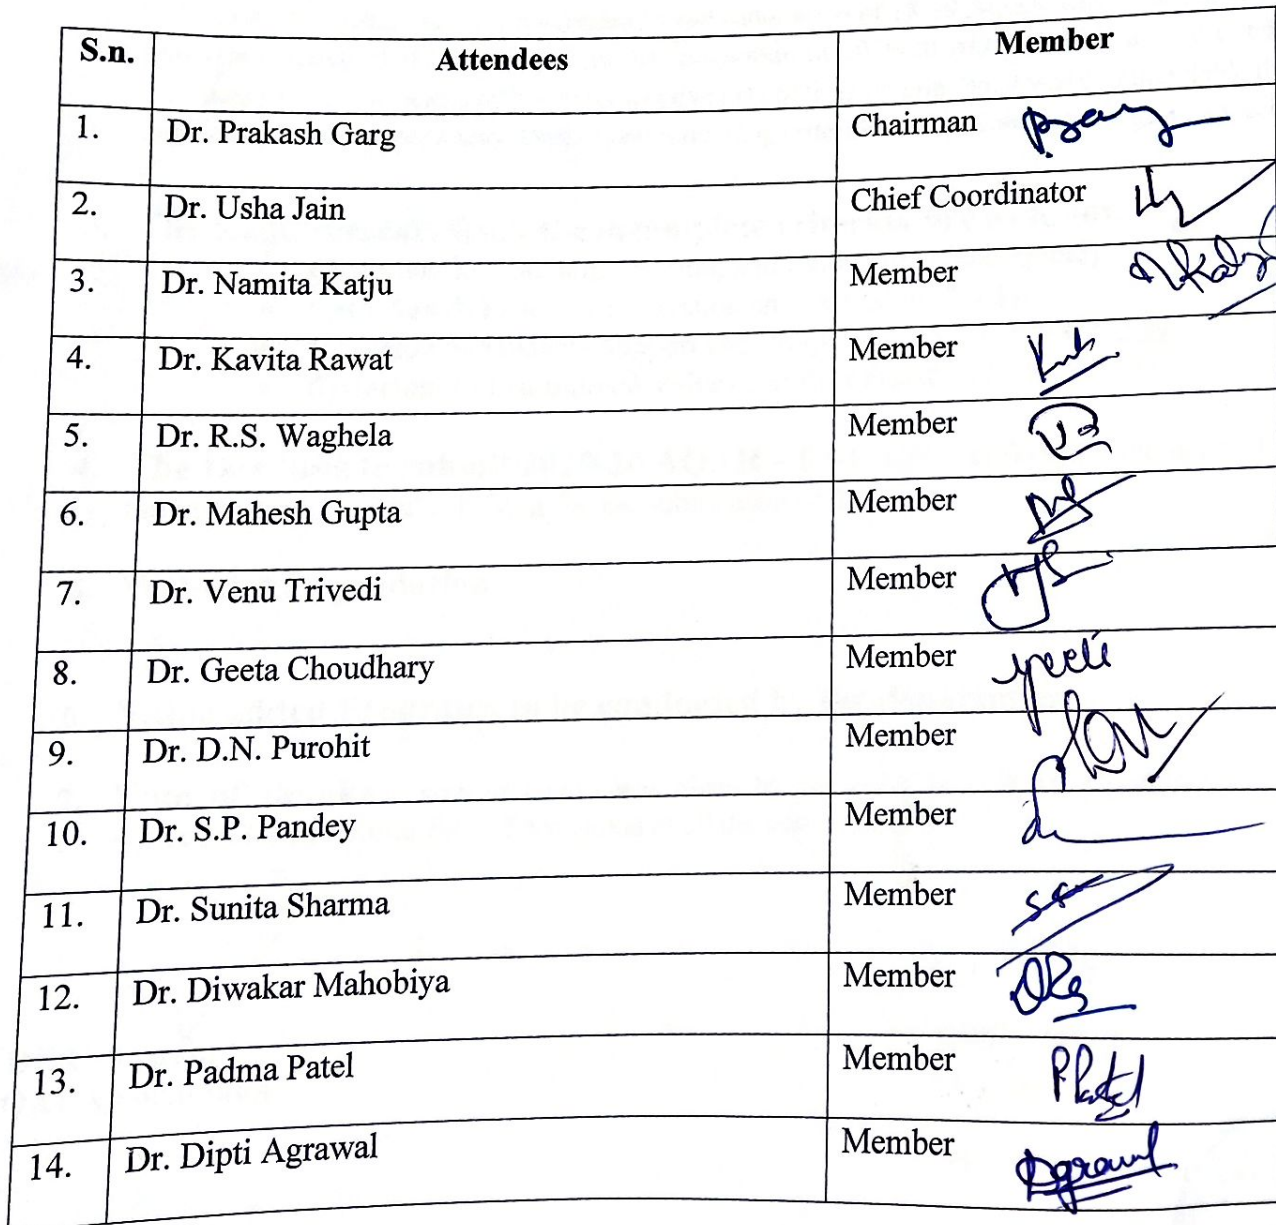 S.n. Attendees Member
1. Dr. Prakash Garg Chairman
2. Dr. Usha Jain Chief Coordinator
3. Dr. Namita Katju Member
4. Dr. Kavita Rawat Member
5. Dr. R.S. Waghela Member
6. Dr. Mahesh Gupta Member
7. Dr. Venu Trivedi Member
8. Dr. Geeta Choudhary Member
9. Dr. D.N. Purohit Member
10. Dr. S.P. Pandey Member
11. Dr. Sunita Sharma Member
12. Dr. Diwakar Mahobiya Member
13. Dr. Padma Patel Member PPatel
14. Dr. Dipti Agrawal Member Dgrawal